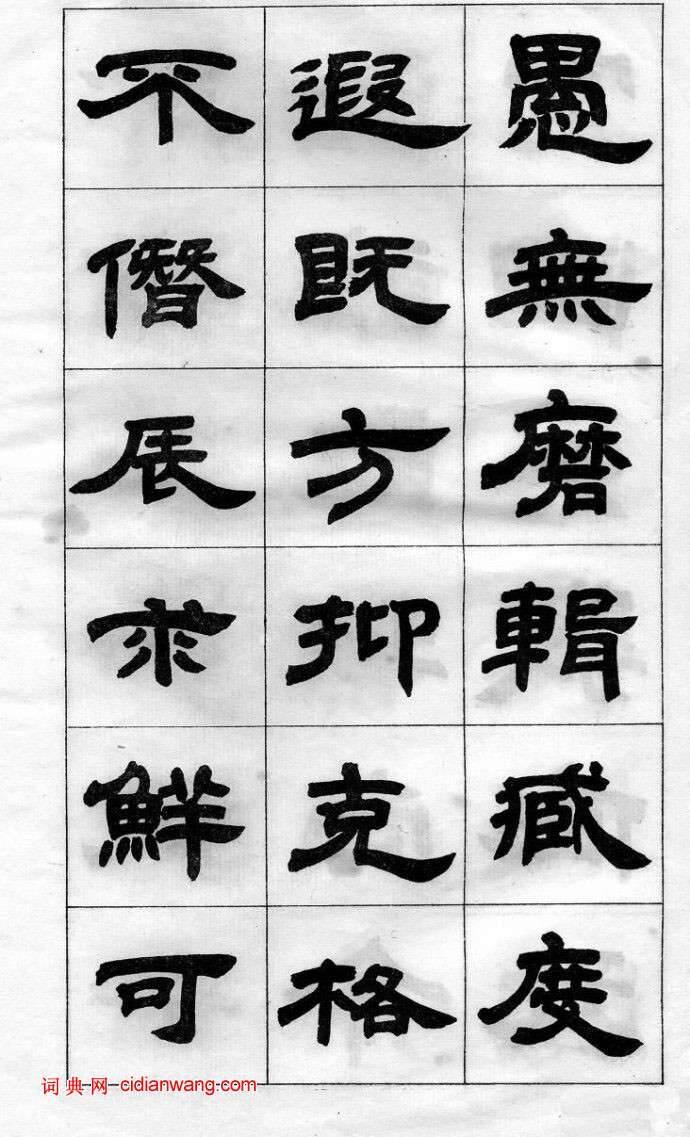 愚無磨輯臧度
遐既方抑克格
不僭辰求鮮可
词典网 cidianwang.com